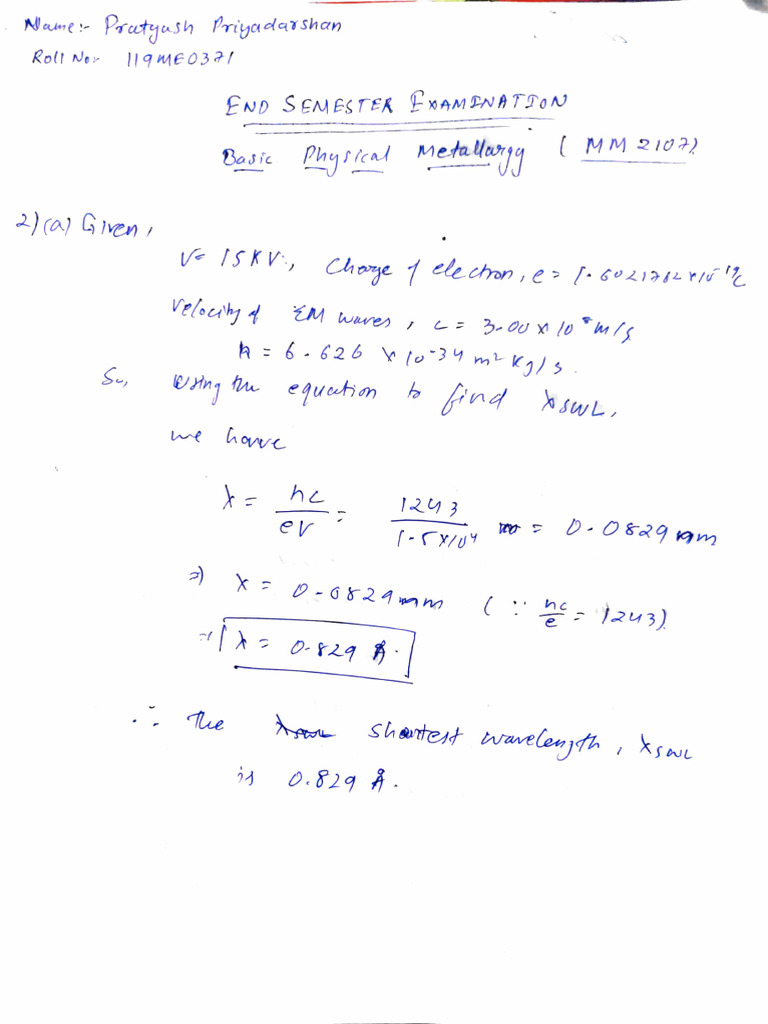 Name:- Pratyush Priyadarshan
Roll No:- 119ME0371
END SEMESTER EXAMINATION
Basic Physical Metallurgy (MM 2107)
2)(a) Given,
V= 15KV, Charge of electron, e = 1.6021762×10⁻¹⁹C
Velocity of EM waves, c = 3.00×10⁸ m/s
h = 6.626 ×10⁻³⁴ m² Kg/s.
So, using the equation to find λSWL,
we have
λ = hc/eV = 1243/1.5×10⁴ = 0.0829 nm
⇒ λ = 0.0829 nm (∵ hc/e = 1243)
⇒ λ = 0.829 Å.
∴ The shortest wavelength, λSWL
is 0.829 Å.